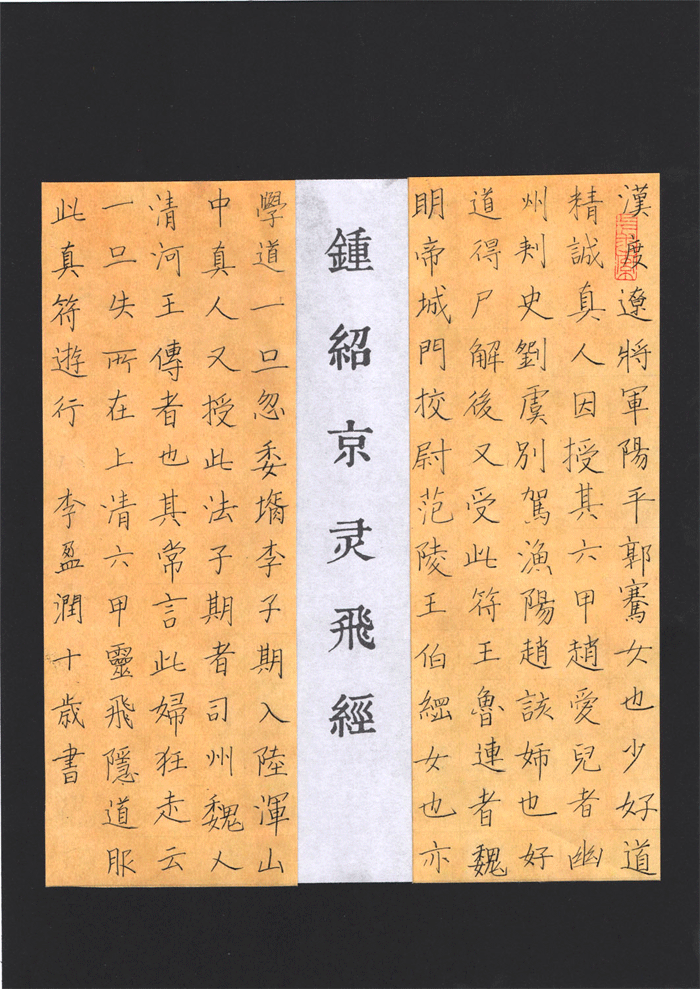 漢度遼將軍陽平郭騫女也少好道
精誠真人因授其六甲趙愛兒者幽
州刺史劉虞別駕漁陽趙該姊也好
道得尸解後又受此符王魯連者魏
明帝城門校尉范陵王伯綱女也亦
鍾紹京灵飛經
學道一旦忽委壻李子期入陸渾山
中真人又授此法子期者司州魏人
清河王傳者也其常言此婦狂走云
一旦失所在上清六甲靈飛隱道服
此真符遊行 李盈潤十歳書